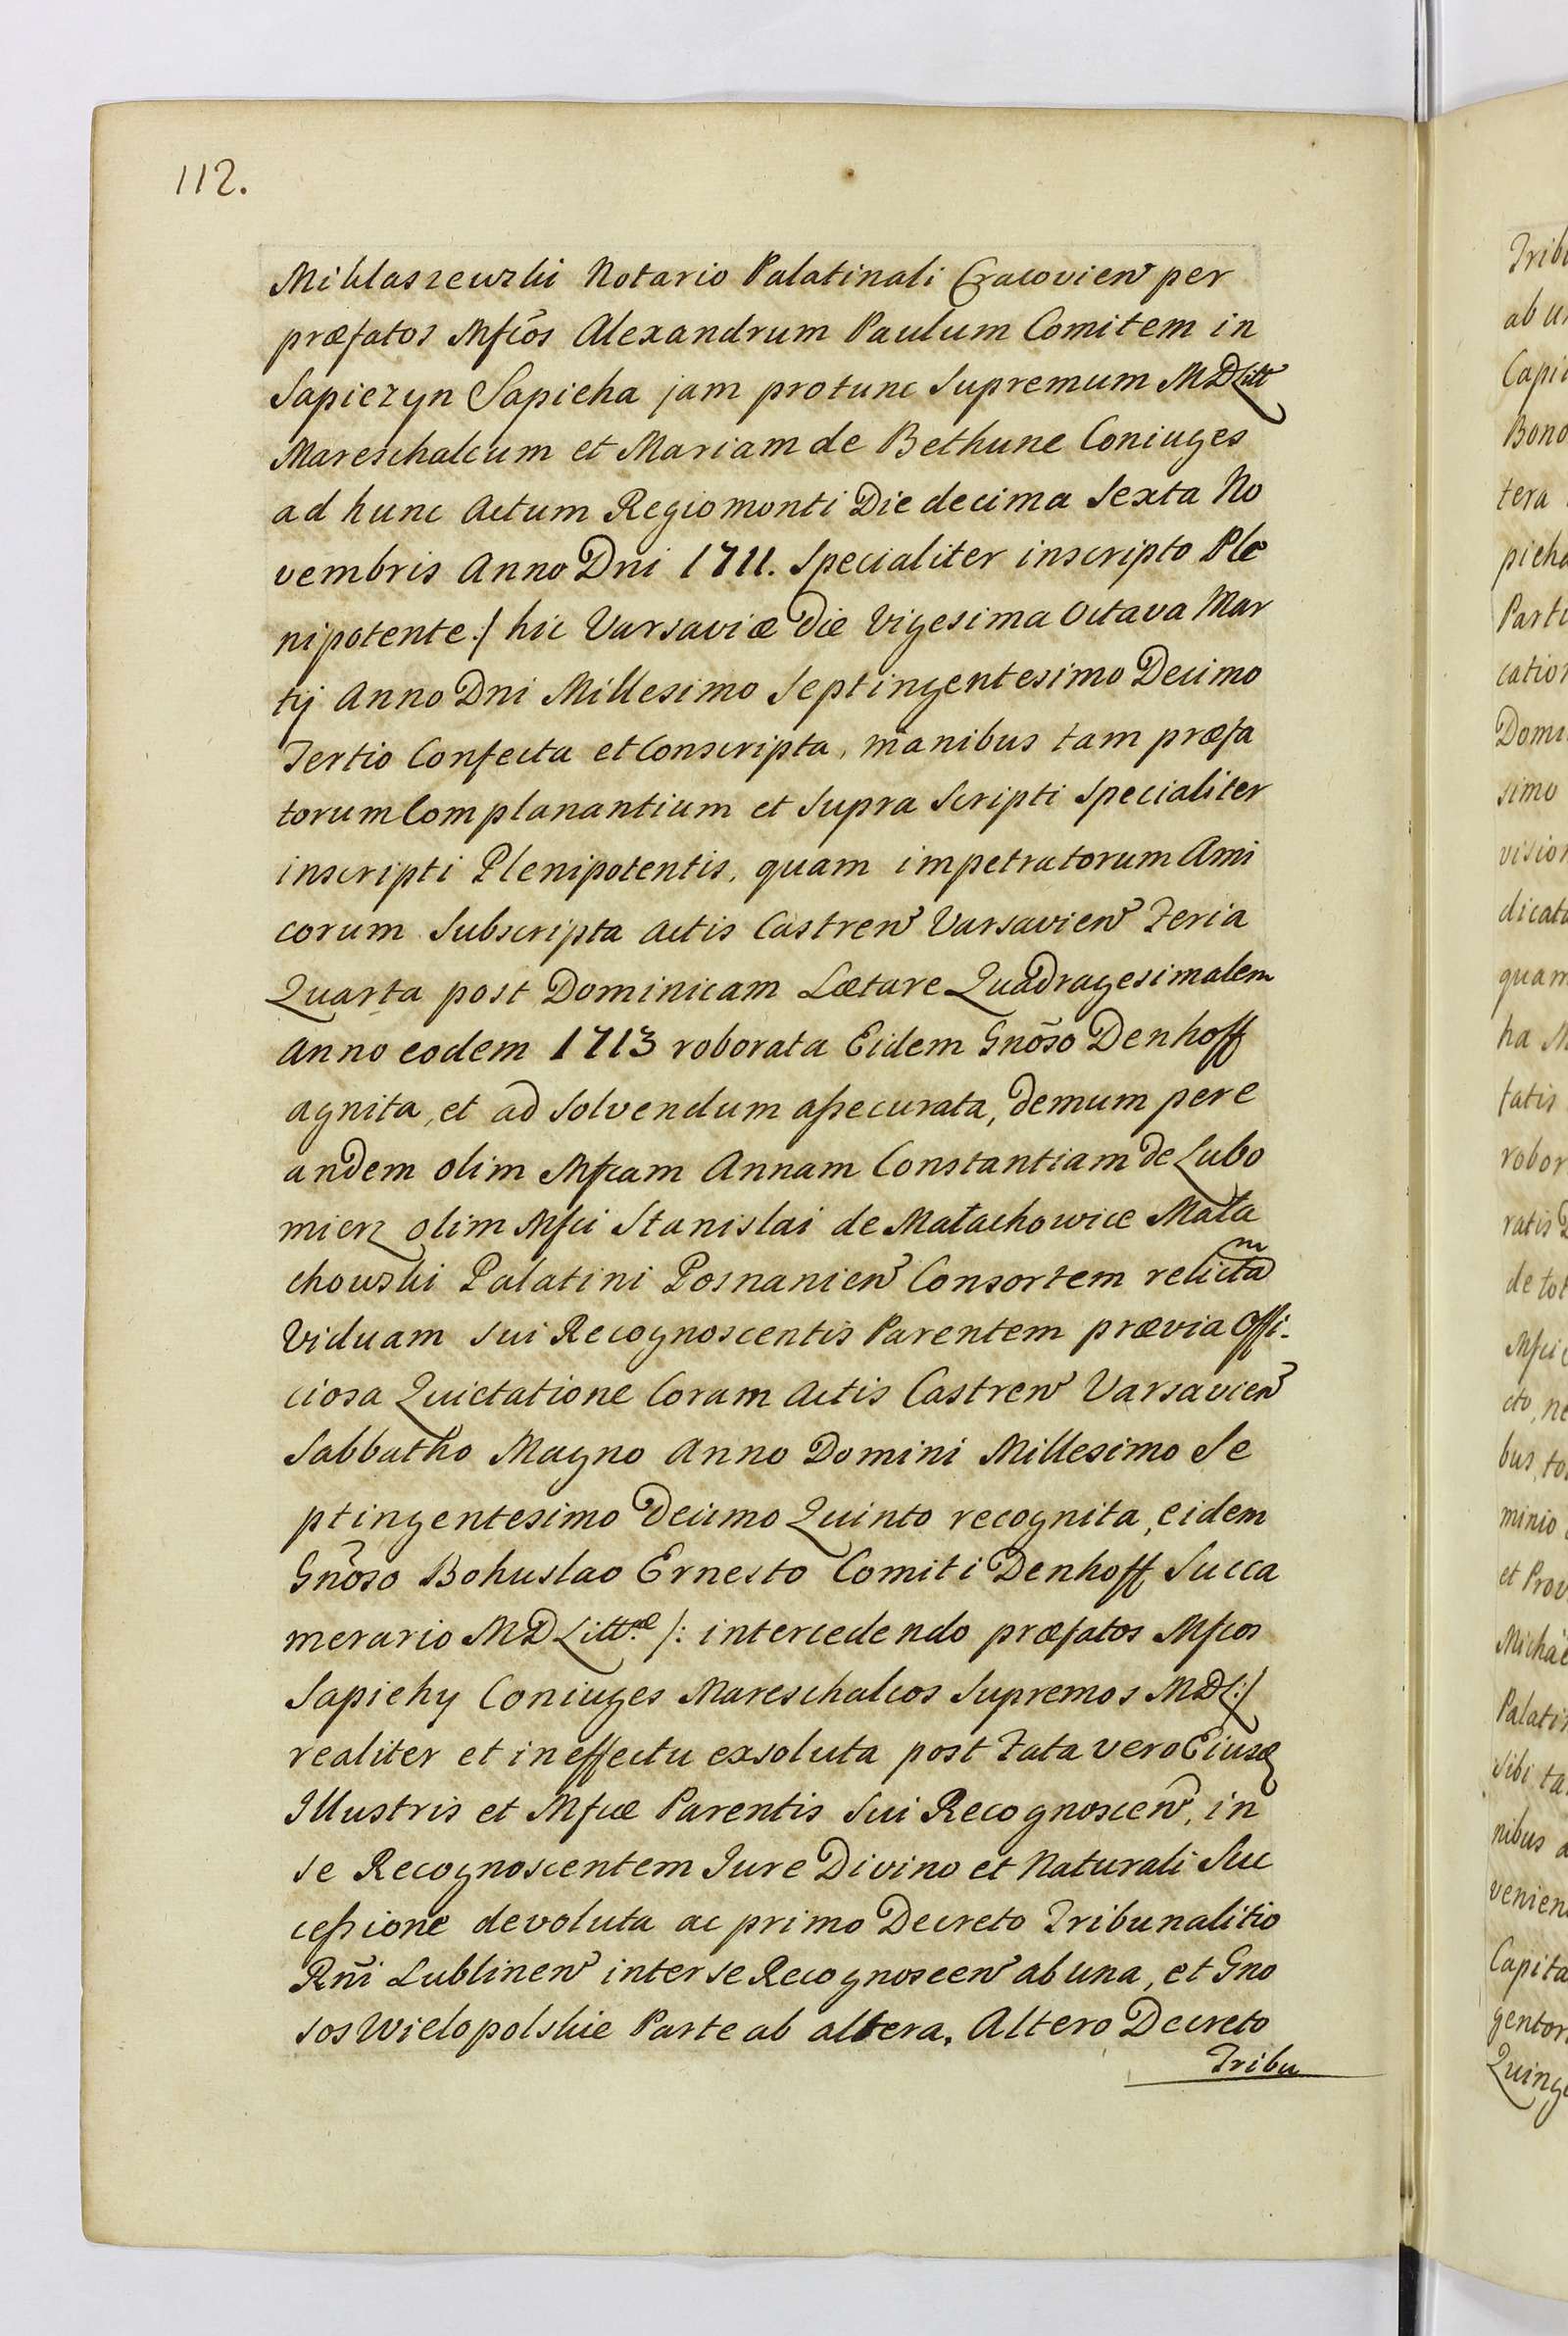 112.
Miklaszewski Notario Palatinali Cracovien per
præfatos Mfcõs Alexandrum Paulum Comitem in
Sapiezyn Sapieha jam protunc Supremum MDLitt
Mareschalcum et Mariam de Bethune Coniuges
ad hunc Actum Regiomonti Die decima Sexta No
vembris Anno Dni 1711. Specialiter inscripto Ple
nipotente :/ hic Varsaviæ Die Vigesima Octava Mar
tij Anno Dni Millesimo Septingentesimo Decimo
Tertio Confecta et Conscripta, manibus tam præfa
torum Complanantium et Supra Scripti Specialiter
inscripti Plenipotentis, quam impetratorum Ami
corum Subscripta Actis Castren Varsavien Feria
Quarta post Dominicam Lætare Quadragesimalem
Anno eodem 1713 roborata Eidem Gnõso Denhoff
agnita, et ad Solvendum assecurata, demum per e
andem olim Mfcam Annam Constantiam de Lubo
mierz olim Mfci Stanislai de Małachowice Mała
chowski Palatini Posnanien Consortem relictam
Viduam Sui Recognoscentis Parentem prævia Offi-
ciosa Quietatione Coram Actis Castren Varsavien
Sabbatho Magno Anno Domini Millesimo Se
ptingentesimo Decimo Quinto recognita, eidem
Gnõso Bohuslao Ernesto Comiti Denhoff Succa
merario MD Litt.æ /: intercedendo præfatos Mfcos
Sapiehy Coniuges Mareschalcos Supremos MDL :/
realiter et in effectu exsoluta post Fata vero Eiusq
Illustris et Mfcæ Parentis Sui Recognoscen, in
se Recognoscentem Jure Divino et Naturali Suc
cessione devoluta ac primo Decreto Tribunalitio
Rñi Lublinen inter se Recognoscen ab una, et Gno
sos Wielopolskie Parte ab altera, Altero Decreto
Tribu
Tribu
ab u
Capi
Bono
tera
pieha
Parti
cation
Domi
simo
vision
dicat
quam
ha M
tatis
robor
ratis
de tot
Mfci
cto, ne
bus, to
minio
et Prov
Michae
Palati
sibi ta
nibus
venien
Capita
gentor
Quinge